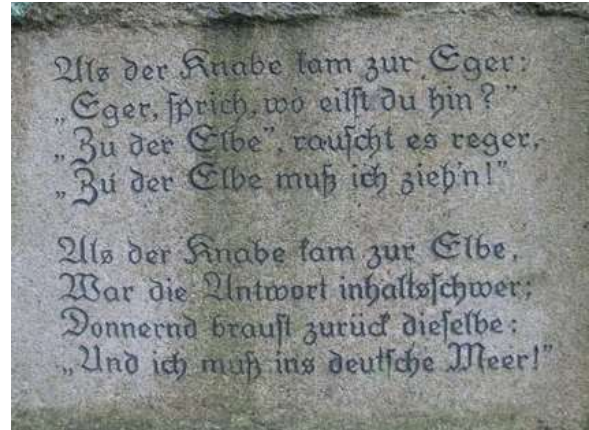 Als der Knabe kam zur Eger:
„Eger, ſprich, wo eilſt du hin?"
„Zu der Elbe", rauſcht es reger,
„Zu der Elbe muß ich zieh'n!"
Als der Knabe kam zur Elbe,
War die Antwort inhaltsſchwer;
Donnernd brauſt zurück dieſelbe:
„Und ich muß ins deutſche Meer!"